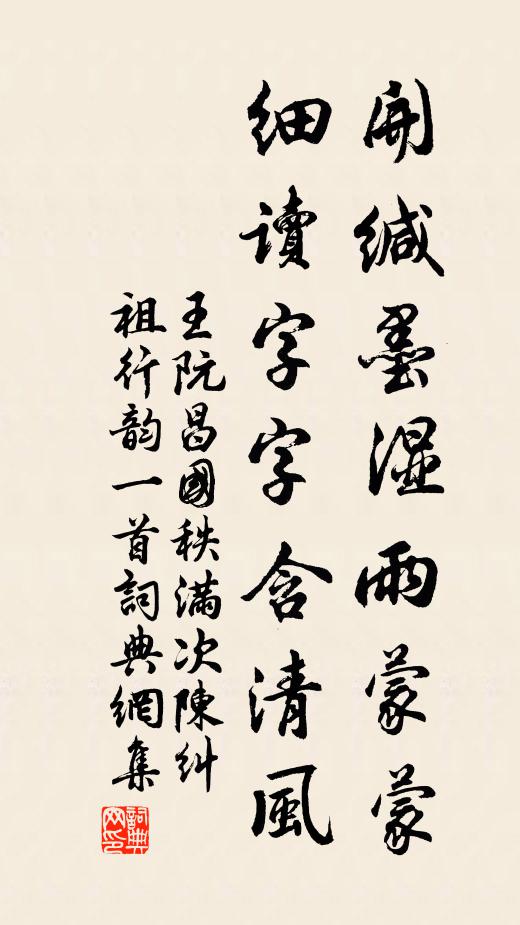 開緘墨濕雨蒙蒙
細讀字字含清風
王阮昌國秩滿次陳糾
祖行韵一首詞典網集
詞典
网印